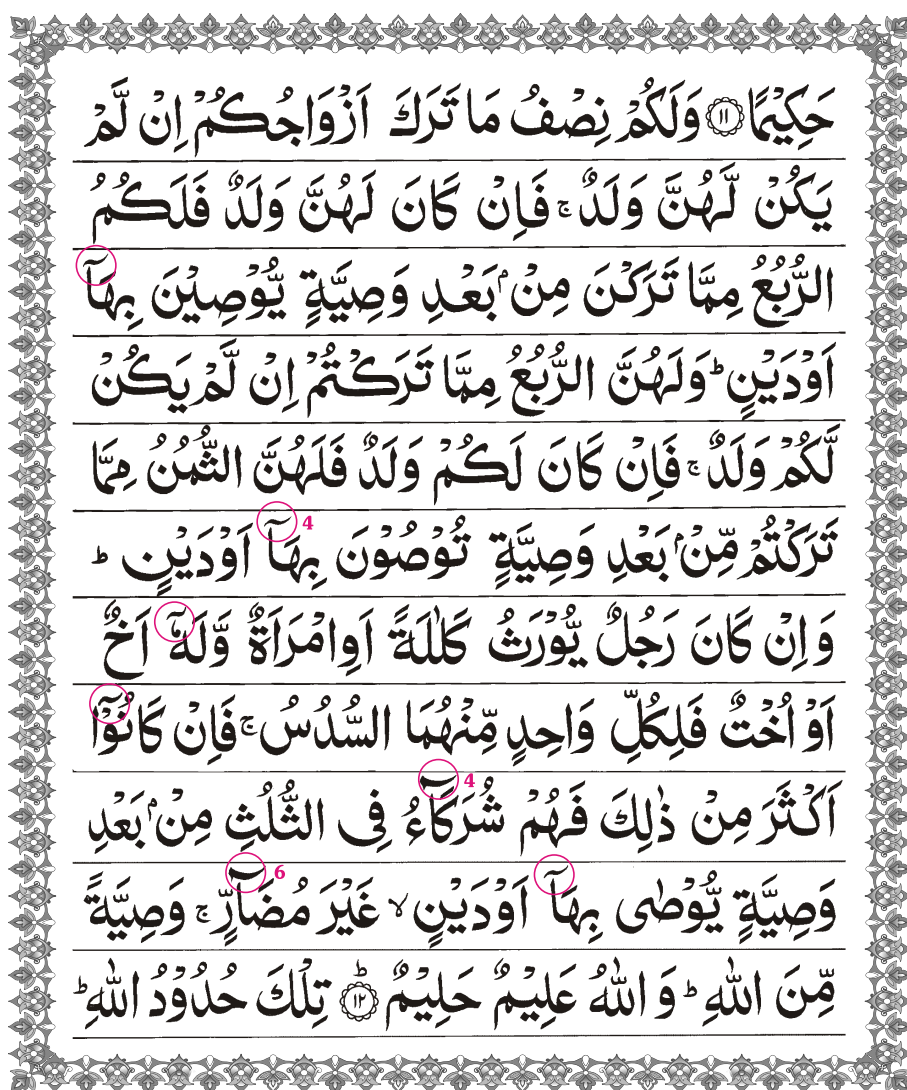 حَكِيْمًا ۝۱۱ وَلَكُمْ نِصْفُ مَا تَرَكَ اَزْوَاجُكُمْ اِنْ لَّمْ
يَكُنْ لَّهُنَّ وَلَدٌ ۚ فَاِنْ كَانَ لَهُنَّ وَلَدٌ فَلَكُمُ
الرُّبُعُ مِمَّا تَرَكْنَ مِنْۢ بَعْدِ وَصِيَّةٍ يُّوْصِيْنَ بِهَاۤ
اَوْدَيْنٍ ؕ وَلَهُنَّ الرُّبُعُ مِمَّا تَرَكْتُمْ اِنْ لَّمْ يَكُنْ
لَّكُمْ وَلَدٌ ۚ فَاِنْ كَانَ لَكُمْ وَلَدٌ فَلَهُنَّ الثُّمُنُ مِمَّا
تَرَكْتُمْ مِّنْۢ بَعْدِ وَصِيَّةٍ تُوْصُوْنَ بِهَاۤ 4 اَوْدَيْنٍ ؕ
وَاِنْ كَانَ رَجُلٌ يُّوْرَثُ كَلٰلَةً اَوِامْرَاَةٌ وَّلَهٗۤ اَخٌ
اَوْ اُخْتٌ فَلِكُلِّ وَاحِدٍ مِّنْهُمَا السُّدُسُ ۚ فَاِنْ كَانُوْۤا
اَكْثَرَ مِنْ ذٰلِكَ فَهُمْ شُرَكَآءُ 4 فِى الثُّلُثِ مِنْۢ بَعْدِ
وَصِيَّةٍ يُّوْصٰى بِهَاۤ اَوْدَيْنٍ ۙ غَيْرَ مُضَآرٍّ 6 ۚ وَصِيَّةً
مِّنَ اللّٰهِ ؕ وَ اللّٰهُ عَلِيْمٌ حَلِيْمٌ ؕ۝۱۲ تِلْكَ حُدُوْدُ اللّٰهِ ؕ